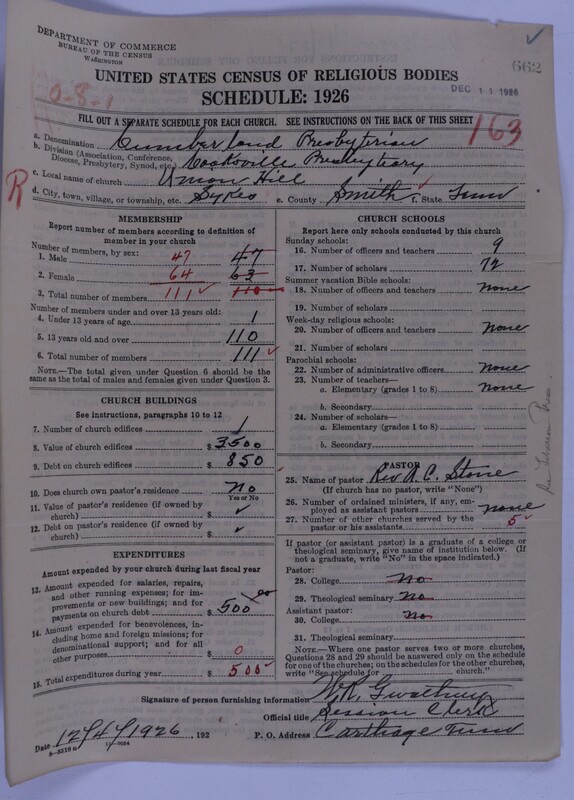 DEPARTMENT OF COMMERCE
BUREAU OF THE CENSUS
WASHINGTON
662
UNITED STATES CENSUS OF RELIGIOUS BODIES
DEC 11 1926
0-8-1
SCHEDULE: 1926
FILL OUT A SEPARATE SCHEDULE FOR EACH CHURCH. SEE INSTRUCTIONS ON THE BACK OF THIS SHEET
163
a. Denomination Cumberland Presbyterian
b. Division (Association, Conference, Diocese, Presbytery, Synod, etc.) Cooksville Presbyteary
c. Local name of church Union Hill
R
d. City, town, village, or township, etc. Sykes e. County Smith f. State Tenn
MEMBERSHIP
Report number of members according to definition of member in your church
Number of members, by sex:
1. Male 47 47
2. Female 64 63
3. Total number of members 111 110
Number of members under and over 13 years old:
4. Under 13 years of age 1
5. 13 years old and over 110
6. Total number of members 111
NOTE.—The total given under Question 6 should be the same as the total of males and females given under Question 3.
CHURCH BUILDINGS
See instructions, paragraphs 10 to 12
7. Number of church edifices 1
8. Value of church edifices $ 3500
9. Debt on church edifices $ 850
10. Does church own pastor's residence? No
Yes or No
11. Value of pastor's residence (if owned by church) $
12. Debt on pastor's residence (if owned by church) $
EXPENDITURES
Amount expended by your church during last fiscal year
13. Amount expended for salaries, repairs, and other running expenses; for improvements or new buildings; and for payments on church debt $ 500 00
14. Amount expended for benevolences, including home and foreign missions; for denominational support; and for all other purposes $ 0
15. Total expenditures during year $ 500
CHURCH SCHOOLS
Report here only schools conducted by this church
Sunday schools:
16. Number of officers and teachers 9
17. Number of scholars 72
Summer vacation Bible schools:
18. Number of officers and teachers none
19. Number of scholars
Week-day religious schools:
20. Number of officers and teachers none
21. Number of scholars
Parochial schools:
22. Number of administrative officers none
23. Number of teachers—
a. Elementary (grades 1 to 8) none
b. Secondary
24. Number of scholars—
a. Elementary (grades 1 to 8)
b. Secondary
PASTOR
25. Name of pastor Rev A. C. Stone
(If church has no pastor, write "None")
26. Number of ordained ministers, if any, employed as assistant pastors none
27. Number of other churches served by the pastor or his assistants 5
If pastor (or assistant pastor) is a graduate of a college or theological seminary, give name of institution below. (If not a graduate, write "No" in the space indicated.)
Pastor:
28. College No
29. Theological seminary No
Assistant pastor:
30. College No
31. Theological seminary
NOTE.—Where one pastor serves two or more churches, Questions 28 and 29 should be answered only on the schedule for one of the churches; on the schedules for the other churches, write "See schedule for church."
Signature of person furnishing information W. R. Gwaltney
Official title Session Clerk
Date 12/4/1926, 192 P. O. Address Carthage Tenn
8-5316 a